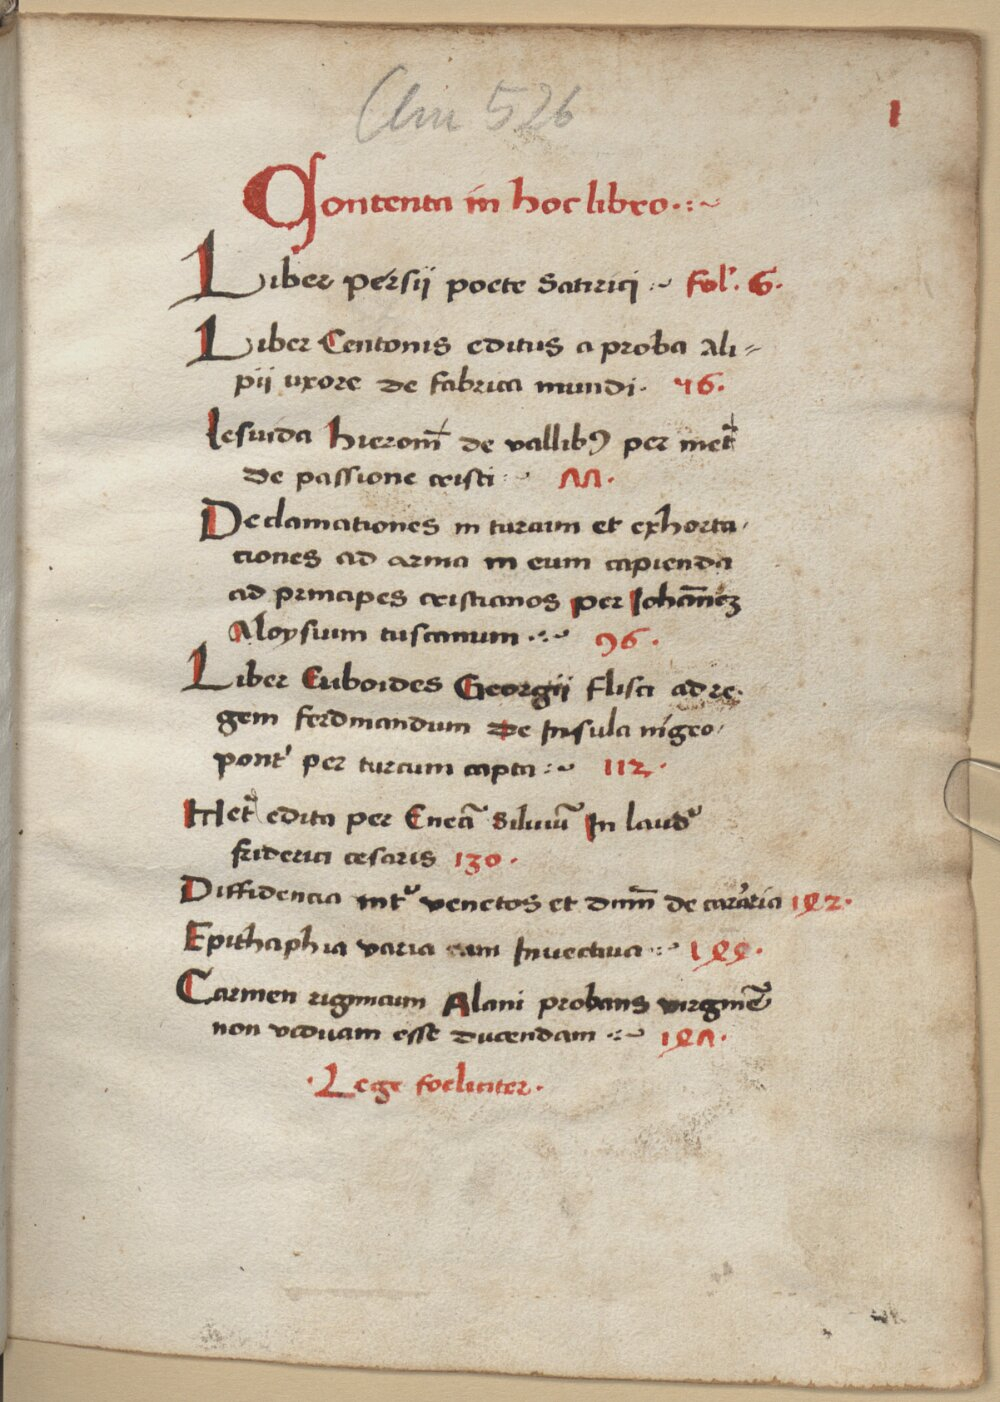 Clm 526
1
Contenta in hoc libro
Liber persii poete Satirici Fol. 6.
Liber Centonis editus a proba Ali=
pii uxore de fabrica mundi. 46.
Iesuida hieroni de vallib9 per met
de passione cristi 77.
Declamationes in turcum et exhorta
tiones ad arma in eum capienda
ad principes cristianos per Iohannez
Aloysium tuscanum 96.
Liber Euboidos Georgii flisci ad re
gem ferdinandum de Insula nigro
pont per turcum capta 112.
Met edita per Eneā Silviū In laud
friderici cesaris 130.
Diffidencia int venetos et dum de cararia 142.
Epithaphia varia cum Invectiva 144.
Carmen rigmicum Alani probans virginē
non viduam esse ducendam 147.
Lege foeliciter.